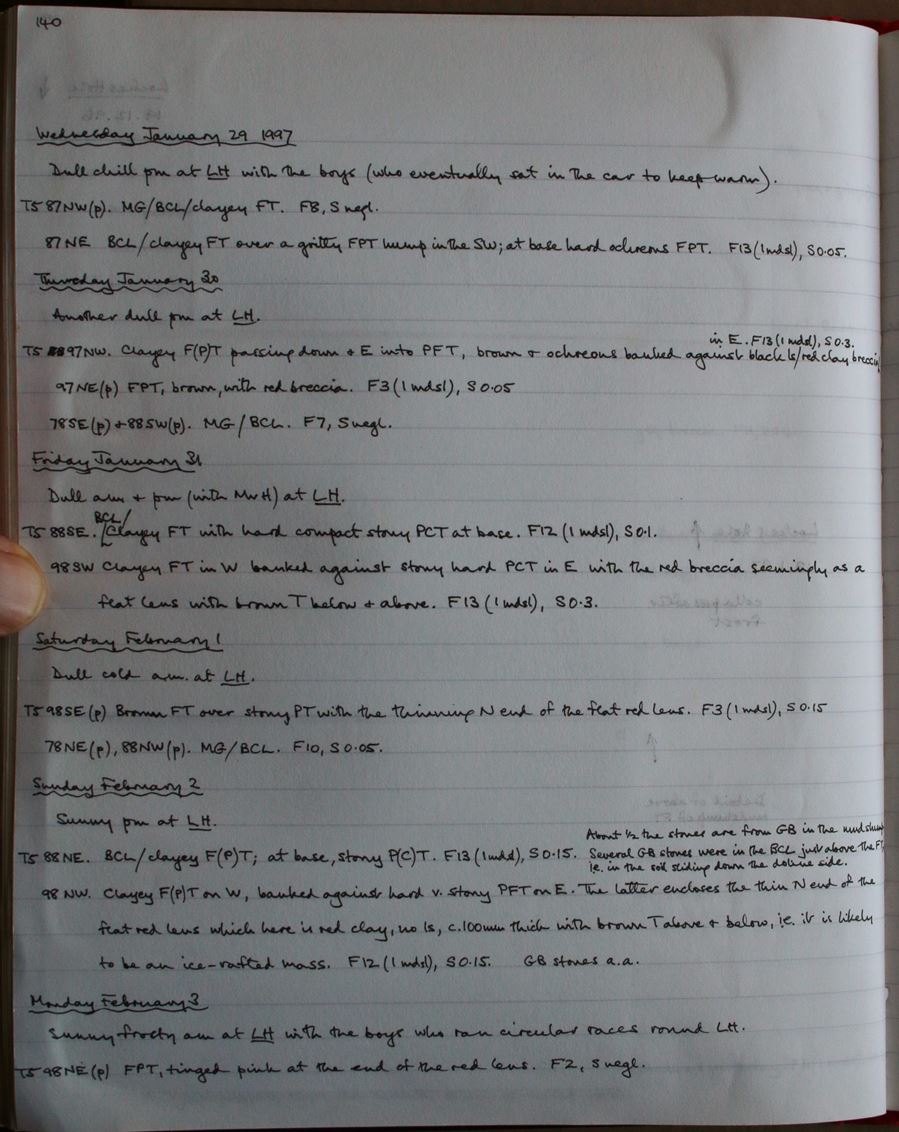 140
Wednesday January 29 1997
Dull chill pm at LH with the boys (who eventually sat in the car to keep warm).
T5 87NW(p). MG/BCL/clayey FT. F8, S negl.
87NE BCL/clayey FT over a gritty FPT hump in the SW; at base hard ochreous FPT. F13 (1 mdsl), S 0.05.
Thursday January 30
Another dull pm at LH.
in E. F13 (1 mdsl), S 0.3.
T5 97NW. Clayey F(P)T passing down & E into PFT, brown & ochreous banked against black ls/red clay breccia
97NE(p) FPT, brown, with red breccia. F3 (1 mdsl), S 0.05
78SE(p) + 88SW(p). MG/BCL. F7, S negl.
Friday January 31
Dull am & pm (with MWH) at LH.
BCL/
T5 88SE. Clayey FT with hard compact stony PCT at base. F12 (1 mdsl), S 0.1.
98SW Clayey FT in W banked against stony hard PCT in E with the red breccia seemingly as a
flat lens with brown T below & above. F13 (1 mdsl), S 0.3.
Saturday February 1
Dull cold am. at LH.
T5 98SE(p) Brown FT over stony PT with the thinning N end of the flat red lens. F3 (1 mdsl), S 0.15
78NE(p), 88NW(p). MG/BCL. F10, S 0.05.
Sunday February 2
Sunny pm at LH.
About ½ the stones are from GB in the mudslump
T5 88NE. BCL/clayey F(P)T; at base, stony P(C)T. F13 (1 mdsl), S 0.15. Several GB stones were in the BCL just above the F
ie. in the soil sliding down the doline side.
98NW. Clayey F(P)T on W, banked against hard v. stony PFT on E. The latter encloses the thin N end of the
flat red lens which here is red clay, no ls, c.100mm thick with brown T above & below, i.e. it is likely
to be an ice-rafted mass. F12 (1 mdsl), S 0.15. GB stones a.a.
Monday February 3
Sunny frosty am at LH with the boys who ran circular races round LH.
T5 98NE(p) FPT, tinged pink at the end of the red lens. F2, S negl.